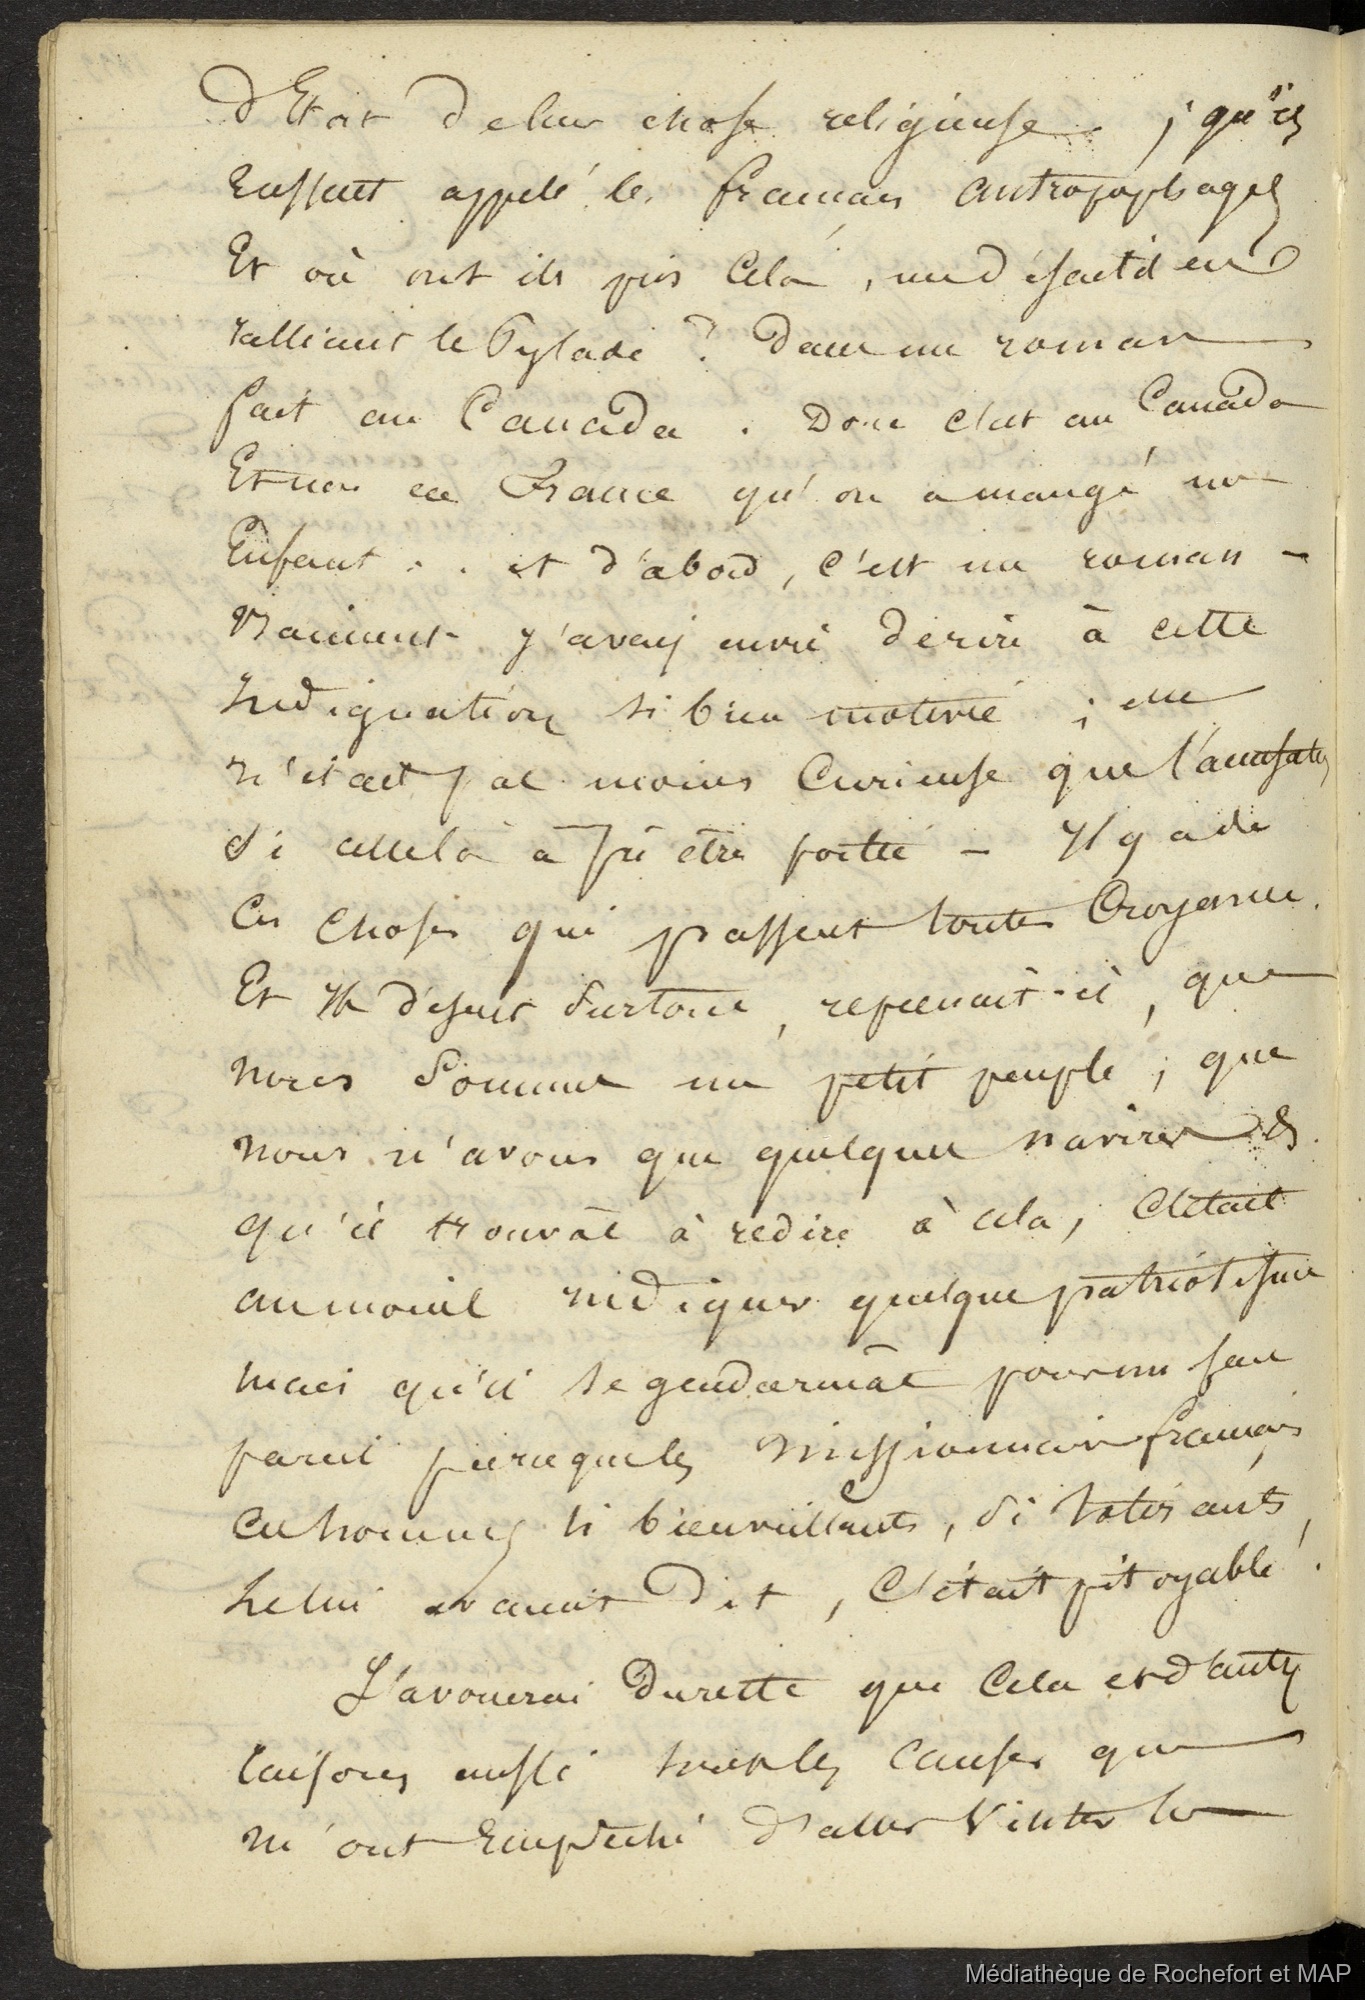 d'Etat de leur chose religieuse. ; qu'ils
eussent appelé les français antropophages
Et où ont ils pris cela, me disait il en
ralliant le Pylade ? dans un roman
fait au Canada. Donc c'est au Canada
Et non en France qu'on a mangé un
Enfant . . et d'abord, c'est un roman -
Vraiment j'avais envie de rire à cette
indignation si bien motivée ; elle
n'était pas moins curieuse que l'accusation
si celle là a pu être portée - Il y a de
ces choses qui passent toutes croyances.
Et ils disent surtout, reprenait-il, que
nous sommes un petit peuple ; que
nous n'avons que quelques navires
qu'il trouvât à redire à cela, c'était
au moins indiquer quelque patriotisme
mais qu'il se gendarmât pour un fait
pareil parce que les missionnaires français
ces hommes si bienveillants, si tolérants,
le lui avaient dit, c'était pitoyable.
J'avouerai du reste que cela et d'autres
raisons aussi sont les causes qui
m'ont empêché d'aller visiter les
Médiathèque de Rochefort et MAP